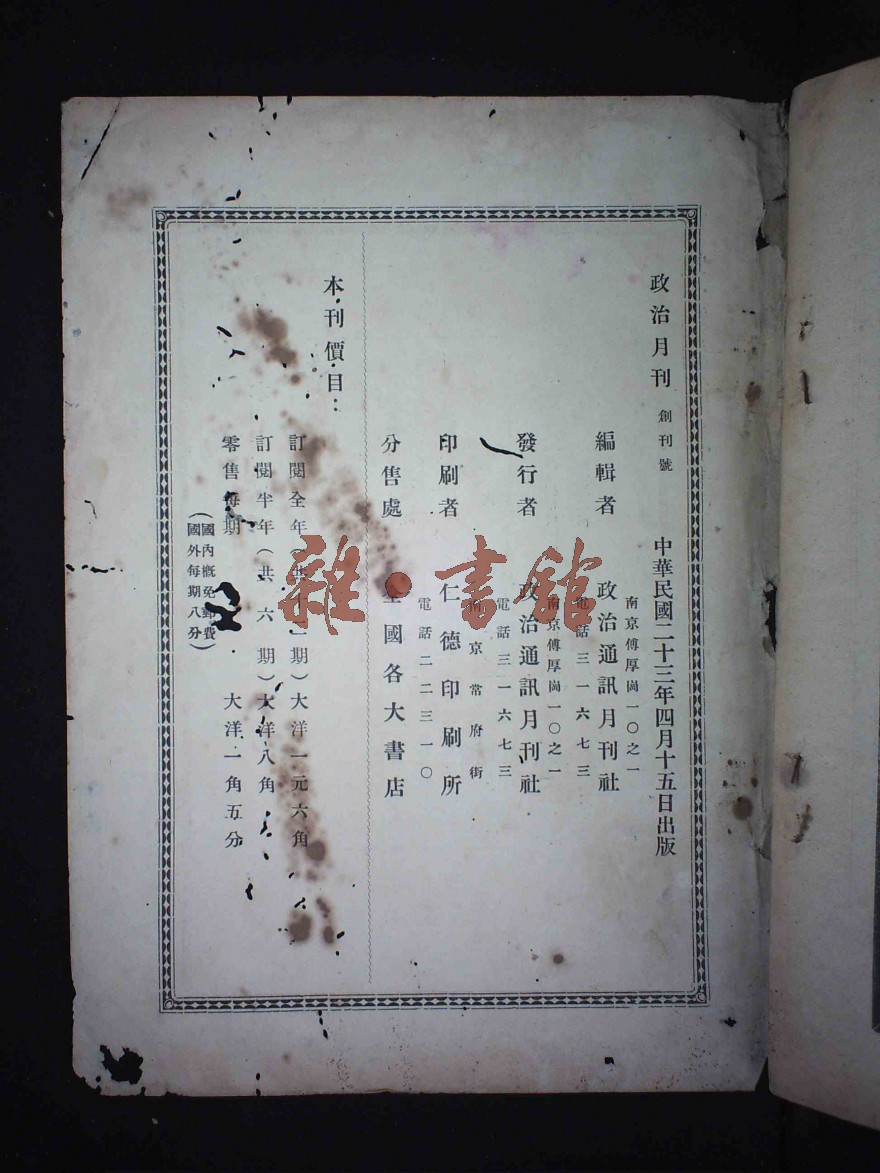 政治月刊 創刊號 中華民國二十三年四月十五日出版
南京傅厚崗一〇之一
編輯者 政治通訊月刊社
電話三一六七三
南京傅厚崗一〇之一
發行者 政治通訊月刊社
電話三一六七三
南京常府街
印刷者 仁德印刷所
電話二二三一〇
分售處 全國各大書店
本刊價目：
訂閱全年（共十二期）大洋一元六角
訂閱半年（共六期）大洋八角
零售每期 大洋一角五分
（國內概免郵費
國外每期八分）
雜·書館